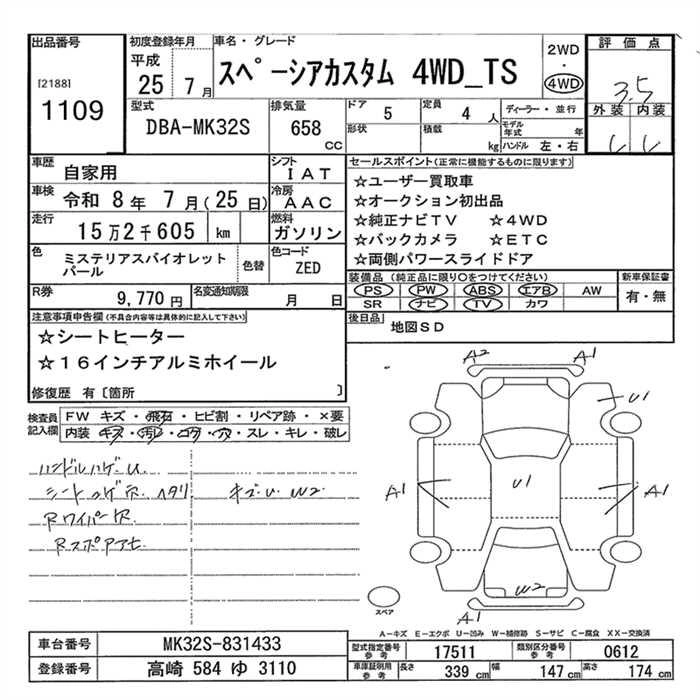 出品番号
[2188]
1109
初度登録年月
平成
25 7月
車名・グレード
スペーシアカスタム 4WD_TS
2WD
・
4WD
評価点
3.5
外装 内装
型式
DBA-MK32S
排気量
658
CC
ドア
5
定員
4 人
形状
積載
kg
ディーラー・並行
モデル年式 年
ハンドル 左・右
車歴
自家用
シフト
IAT
車検
令和 8年 7月(25日)
冷房
AAC
走行
15万2千605 km
燃料
ガソリン
色
ミステリアスバイオレット
パール
色替
色コード
ZED
R券
9,770円
名変通知期限
月 日
セールスポイント(正常に機能するものに限ります)
☆ユーザー買取車
☆オークション初出品
☆純正ナビTV ☆4WD
☆バックカメラ ☆ETC
☆両側パワースライドドア
装備品 (純正品に限り○をつけてください)
PS PW ABS エアB AW
SR ナビ TV カワ
新車保証書
有・無
後日品
地図SD
注意事項申告欄(不具合内容等は具体的に記入して下さい)
☆シートヒーター
☆16インチアルミホイール
修復歴 有〔箇所 〕
検査員
記入欄
FW キズ・飛石・ヒビ割・リペア跡・×要
内装 キズ・汚れ・コゲ・穴・スレ・キレ・破レ
ハンドルハゲU
シートコゲ穴 ヘタリ キズU W2
Rワイパー欠
RスポアナセA2
A1
U1
A1
U1
A1
W2
A1
スペア
A－キズ E－エクボ U－凹み W－補修跡 S－サビ C－腐食 XX－交換済
車台番号
MK32S-831433
登録番号
高崎 584 ゆ 3110
型式指定番号
参考
17511
類別区分番号
参考
0612
車庫証明用
参考
長さ 339 cm 幅 147 cm 高さ 174 cm